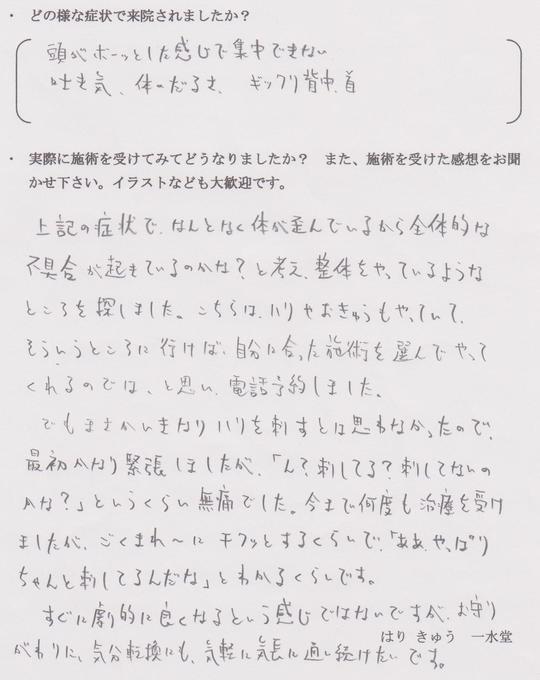 ・ どの様な症状で来院されましたか？
頭がボーッとした感じで集中できない
吐き気、体のだるさ、ギックリ背中、首
・ 実際に施術を受けてみてどうなりましたか？　また、施術を受けた感想をお聞
かせ下さい。イラストなども大歓迎です。
上記の症状で、なんとなく体が歪んでいるから全体的な
不具合が起きているのかな？と考え、整体をやっているような
ところを探しました。こちらは、ハリやおきゅうもやっていて、
そういうところに行けば、自分に合った施術を選んでやって
くれるのでは、と思い、電話予約しました。
でもまさかいきなりハリを刺すとは思わなかったので、
最初かなり緊張しましたが、「ん？刺してる？刺してないの
かな？」というくらい無痛でした。今まで何度も治療を受け
ましたが、ごくまれ〜にチクッとするくらいで、「ああ、やっぱり
ちゃんと刺してるんだな」とわかるくらいです。
すぐに劇的に良くなるという感じではないですが、お守り
がわりに、気分転換にも、気軽に気長に通い続けたいです。
はり きゅう 一水堂